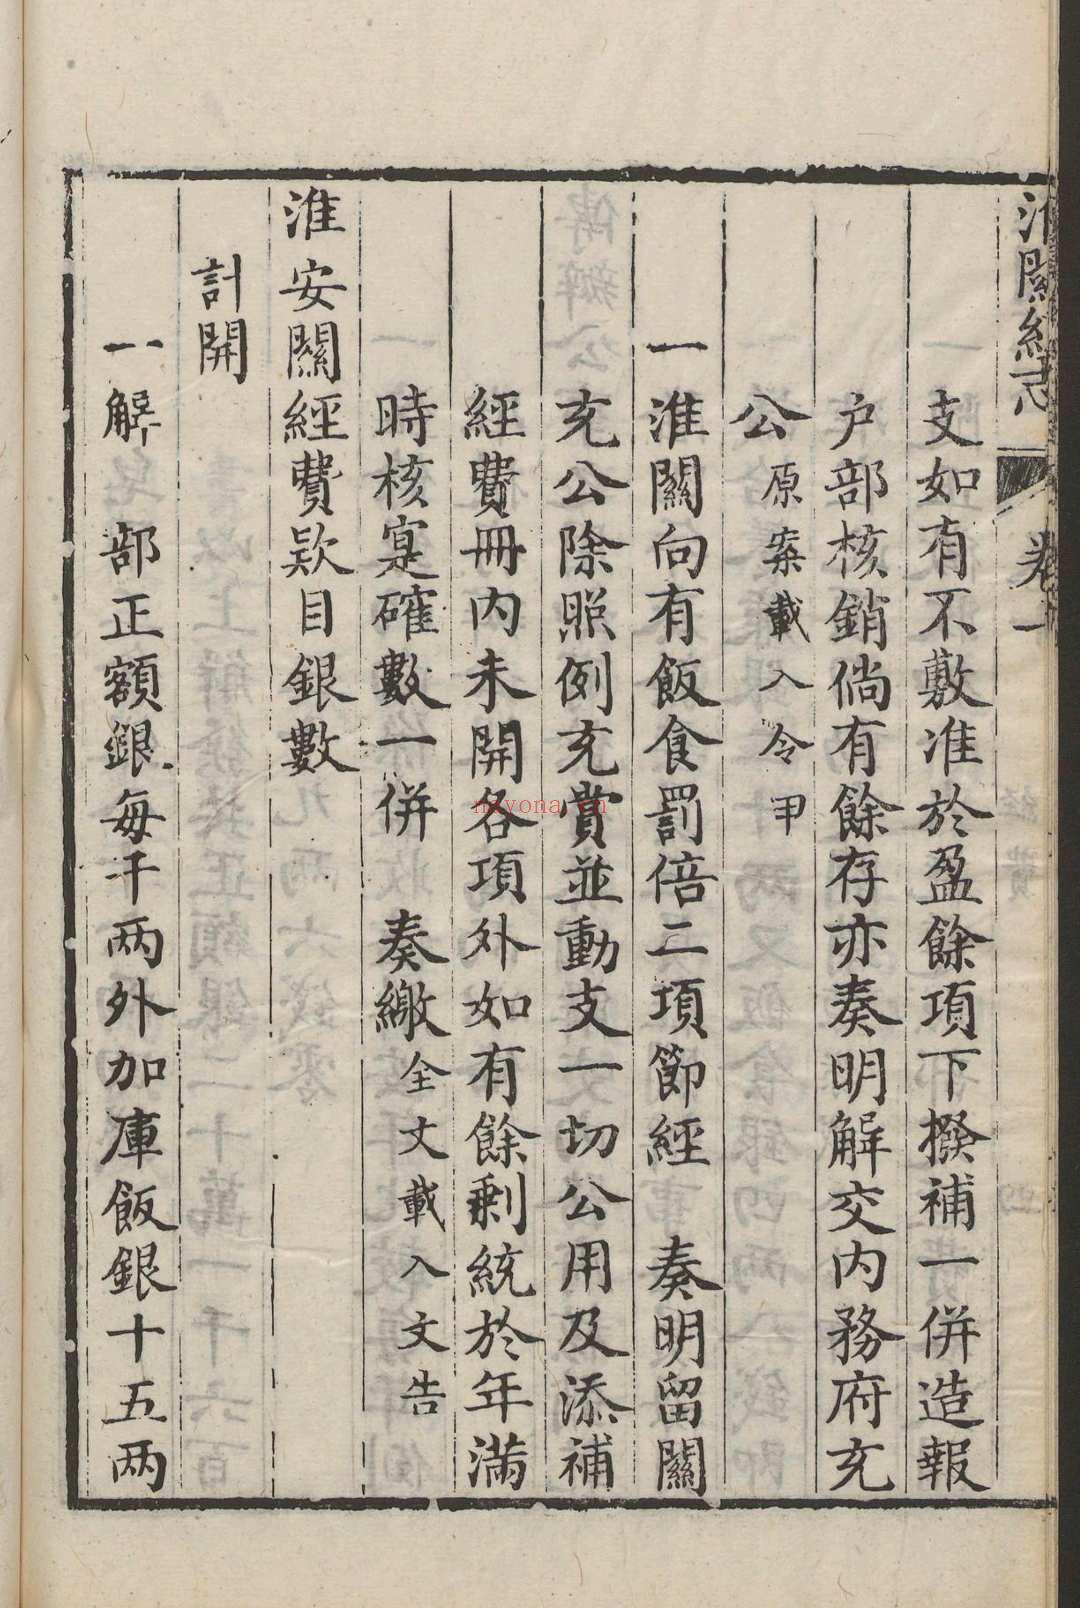 淮關統志 卷一
支如有不敷准於盈餘項下撥補一併造報
户部核銷倘有餘存亦奏明解交內務府充
公原案載入令甲
一淮關向有飯食罰倍二項節經 奏明留關
充公除照例充賞並動支一切公用及添補
經費冊內未開各項外如有餘剩統於年滿
時核寔確數一併 奏繳全文載入文告
淮安關經費欵目銀數
計開
一解 部正額銀每千两外加庫飯銀十五两
nayona.cn